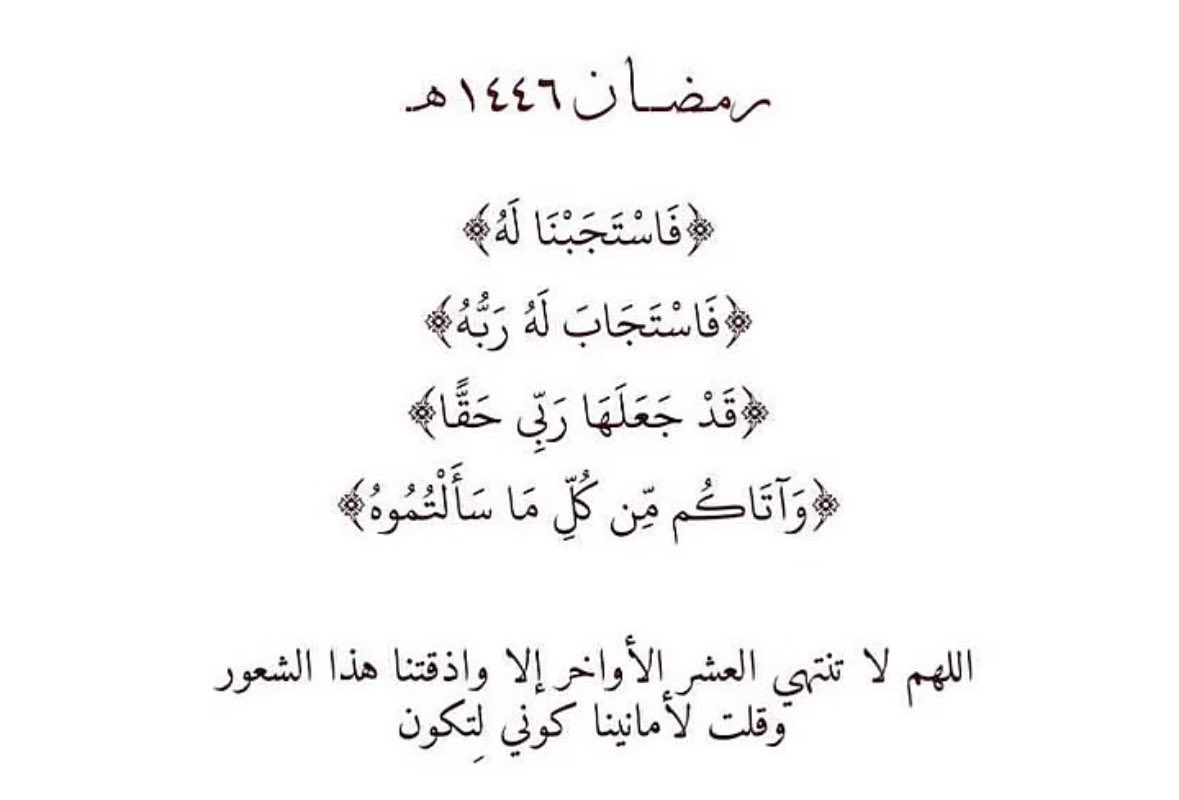 رمضان ١٤٤٦هـ
﴿فَاسْتَجَبْنَا لَهُ﴾
﴿فَاسْتَجَابَ لَهُ رَبُّهُ﴾
﴿قَدْ جَعَلَهَا رَبِّي حَقًّا﴾
﴿وَآتَاكُم مِّن كُلِّ مَا سَأَلْتُمُوهُ﴾
اللهم لا تنتهي العشر الأواخر إلا واذقتنا هذا الشعور
وقلت لأمانينا كوني لِتكون